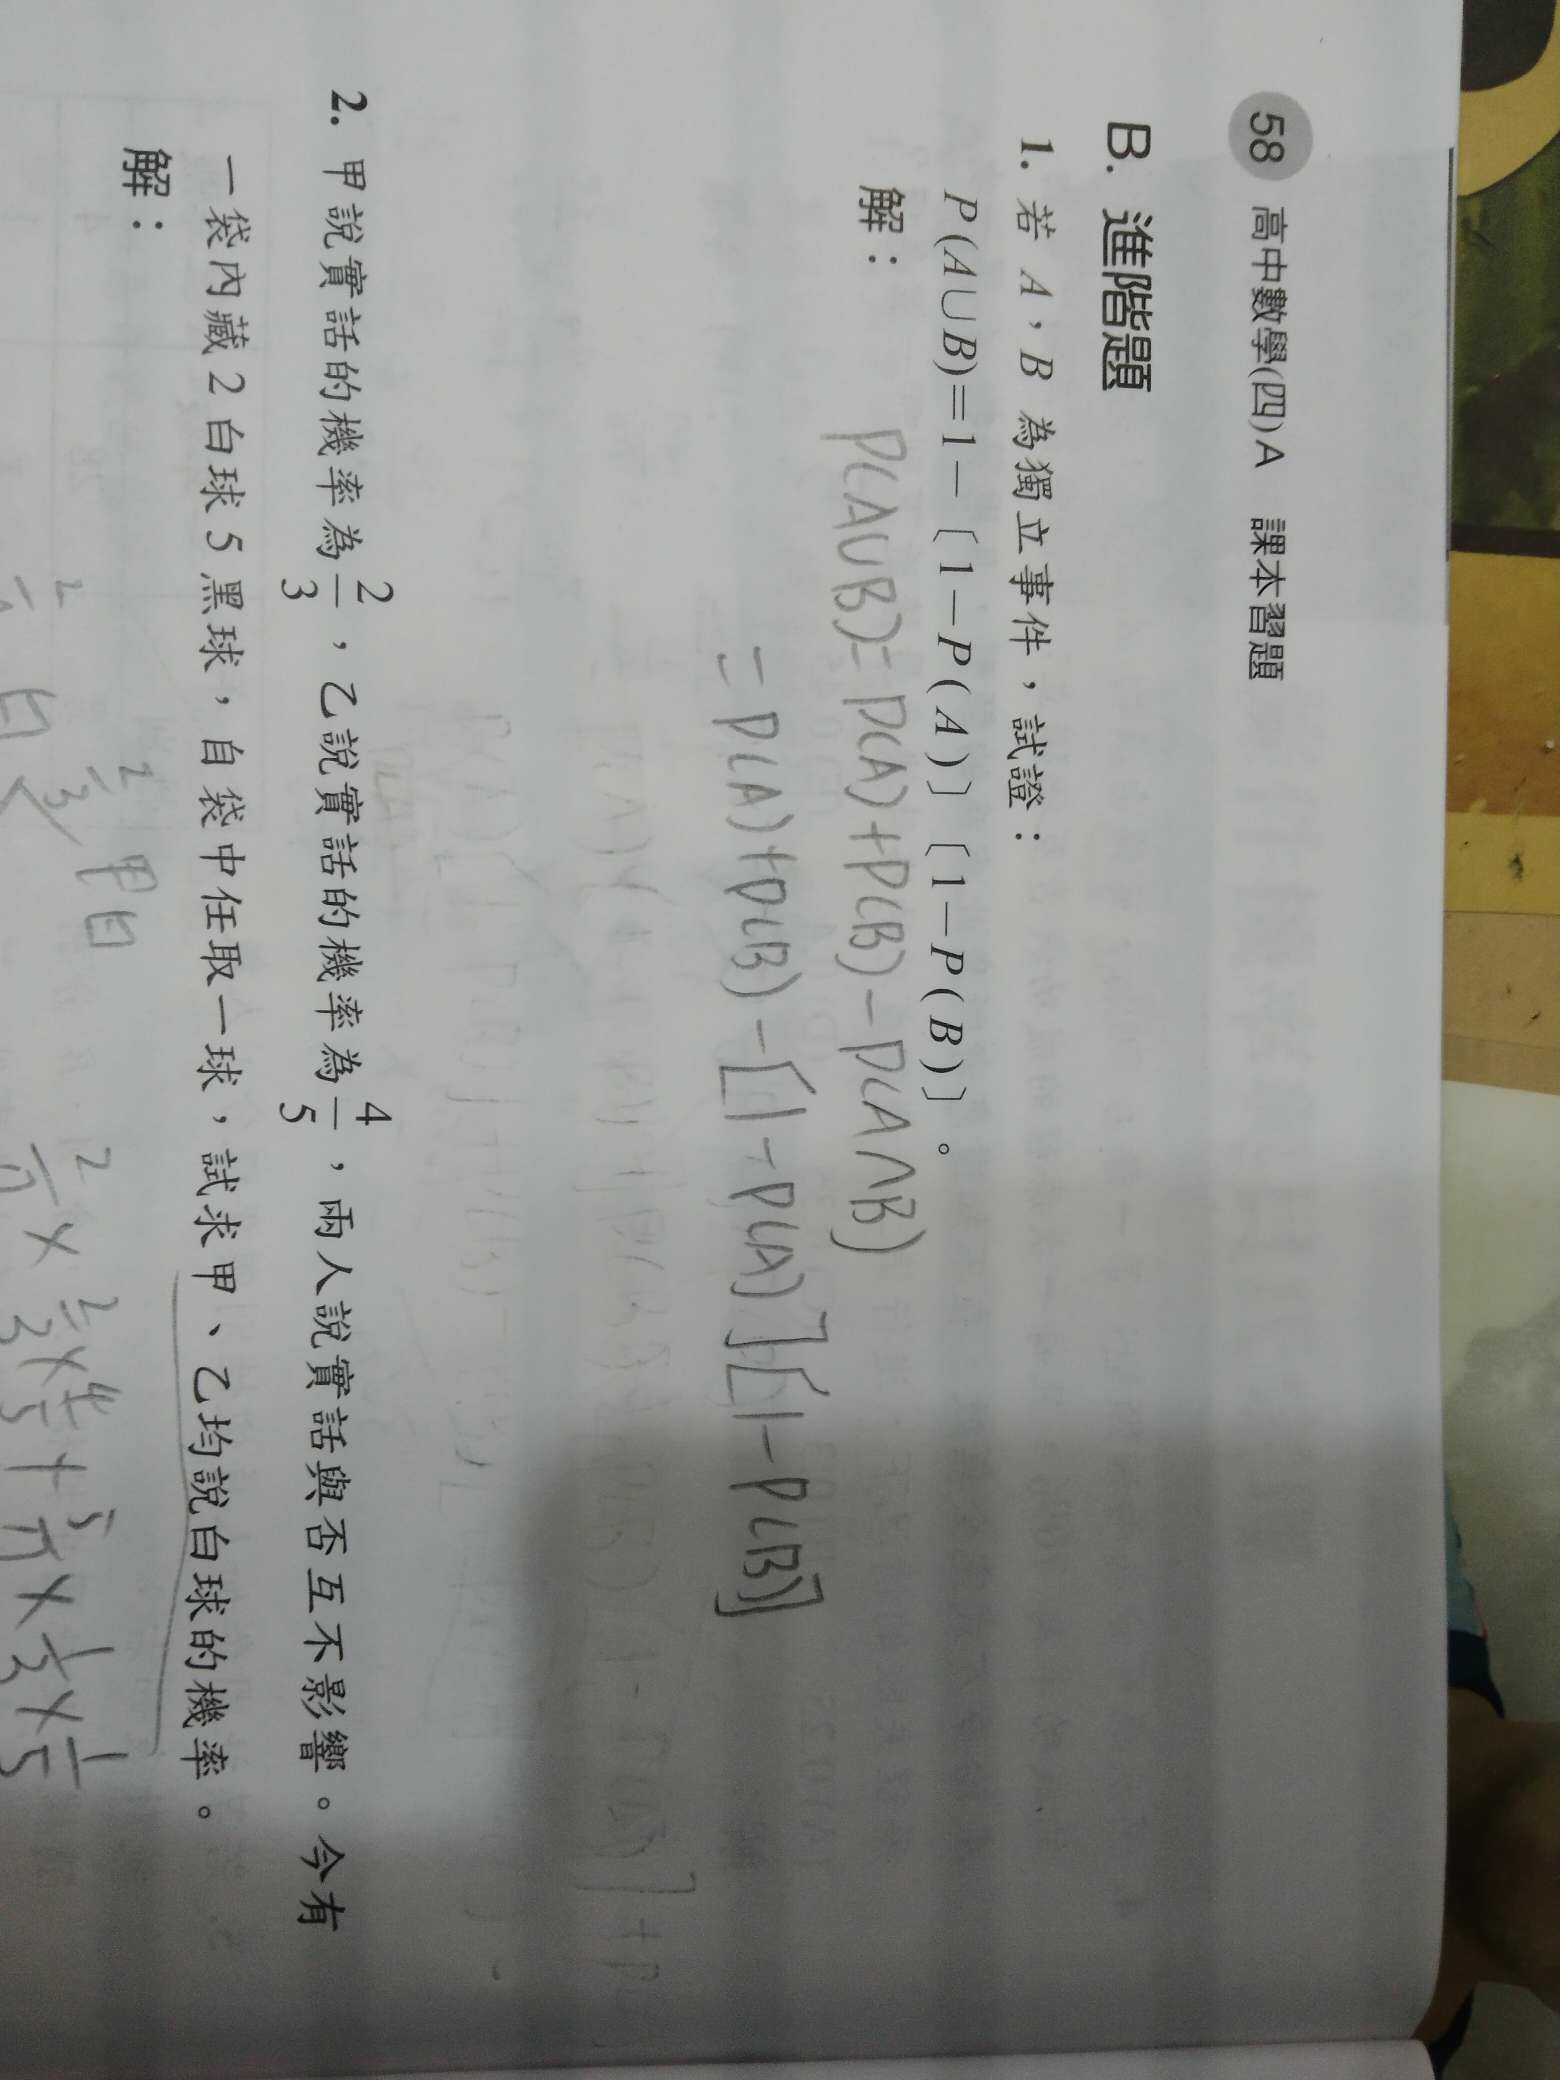 58 高中數學(四)A 課本習題
B. 進階題
1. 若 A，B 為獨立事件，試證：
P(A∪B)=1－〔1－P(A)〕〔1－P(B)〕。
解：
P(A∪B)=P(A)+P(B)-P(A∩B)
=P(A)+P(B)-[1-P(A)][1-P(B)]
2. 甲說實話的機率為 2/3，乙說實話的機率為 4/5，兩人說實話與否互不影響。今有
一袋內藏 2 白球 5 黑球，自袋中任取一球，試求甲、乙均說白球的機率。
解：
2/3 甲白
2/7 × 2/3 × 4/5 + 5/7 × 1/3 × 1/5
白